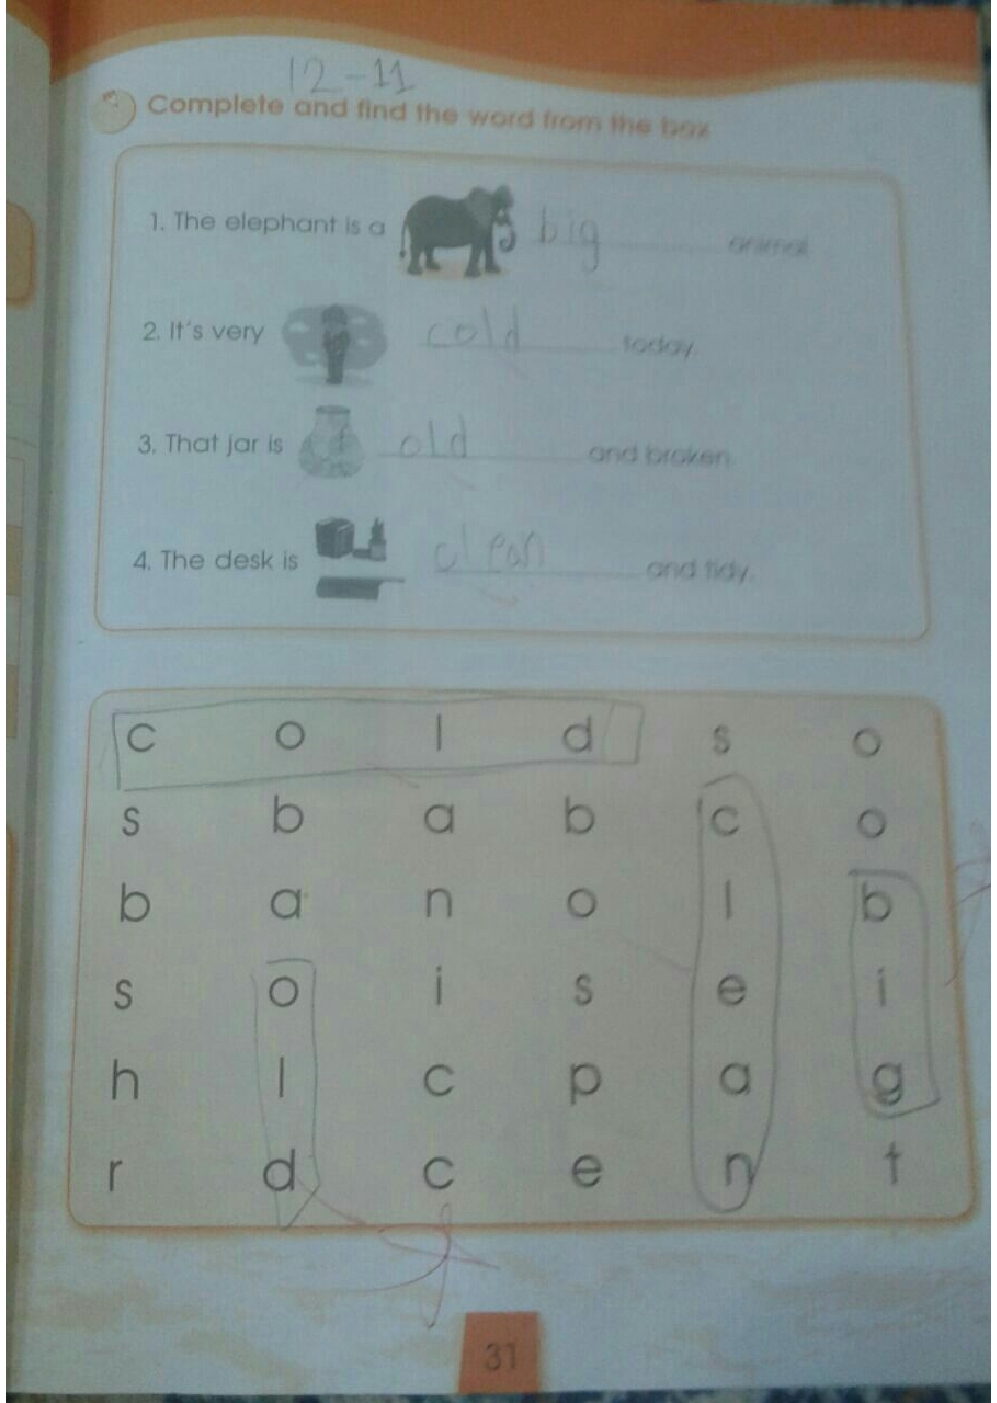 12-11
Complete and find the word from the box
1. The elephant is a big animal
2. It's very cold today.
3. That jar is old and broken.
4. The desk is clean and tidy.
c o l d s o
s b a b c o
b a n o l b
s o i s e i
h l c p a g
r d c e n t
31